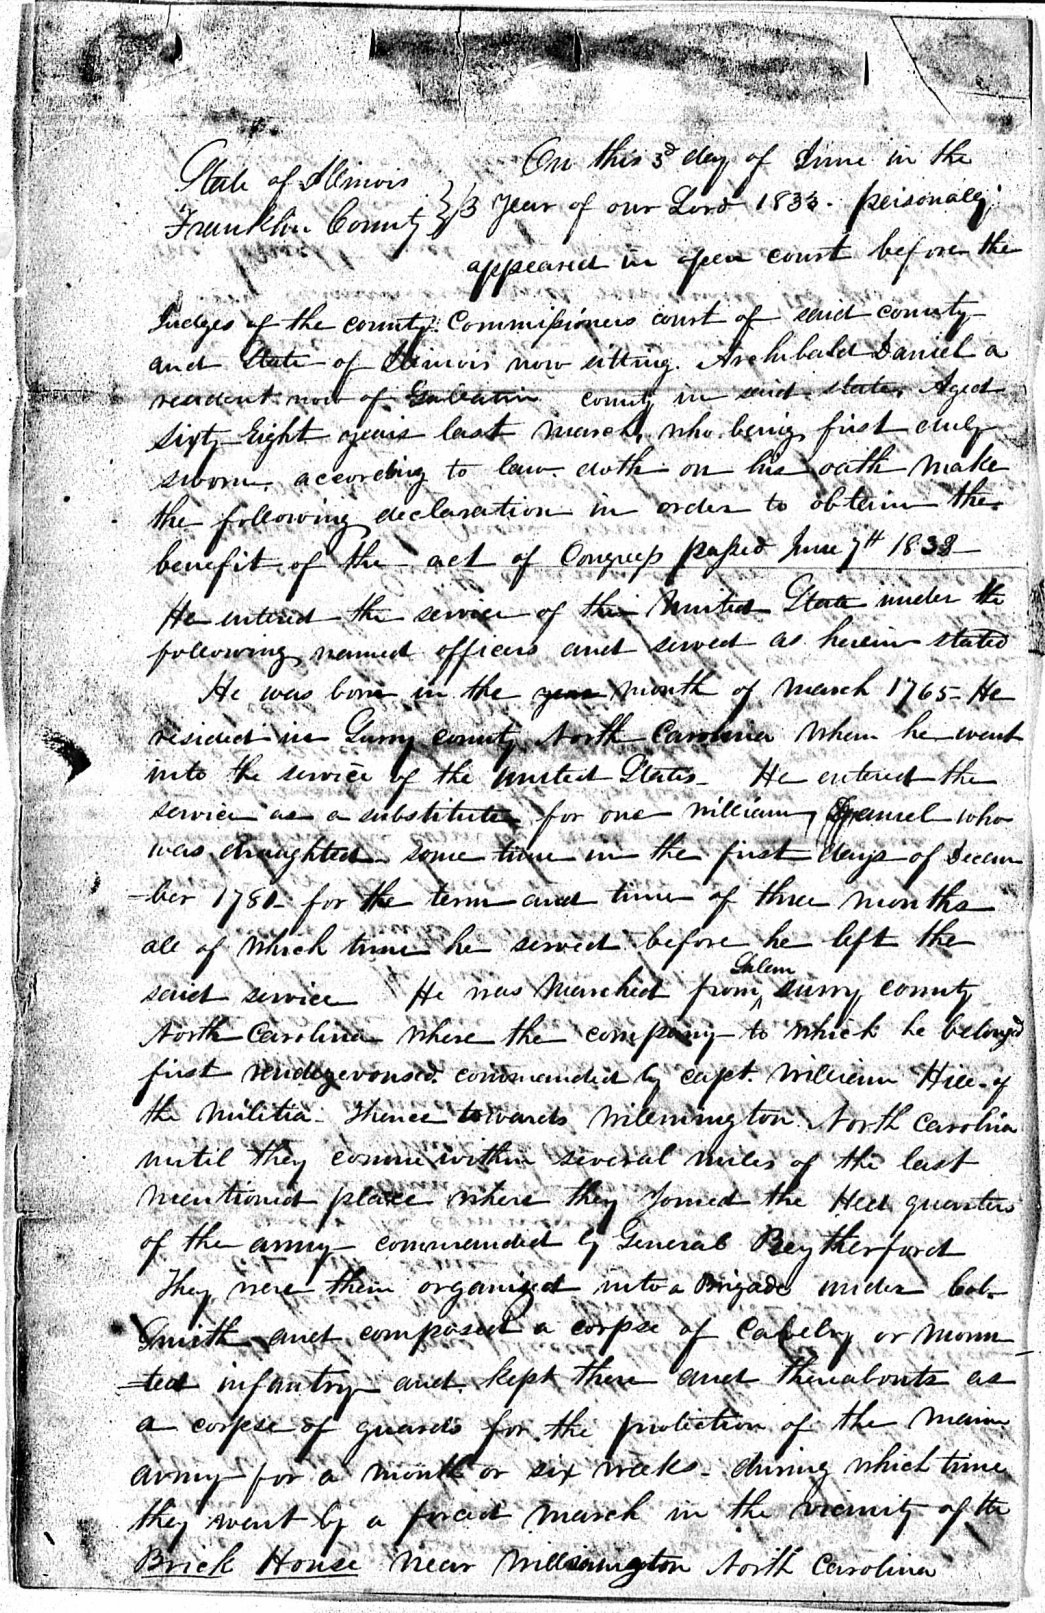 State of Illinois
Franklin County
On this 3d day of June in the
Year of our Lord 1833. personally
appeared in open court before the
Judges of the county Commissioners court of said county
and State of Illinois now sitting. Archibald Daniel a
resident now of Gallatin county in said state, Aged
Sixty Eight years last march, who being first duly
sworn according to law doth on his oath make
the following declaration in order to obtain the
benefit of the act of Congress passed June 7th 1832
He entered the service of the United State under the
following named officers and served as herein stated
He was born in the year month of march 1765 - He
resided in Surry county North Carolina when he went
into the service of the united States - He entered the
service as a substitute for one William Daniel who
was draughted some time in the first days of Decem
-ber 1781 - for the term and time of three months
all of which time he served before he left the
said service He was Marched from Salem surry county
North Carolina where the company to which he belonged
first rendezvoused commanded by capt. William Hill of
the Militia - thence towards Wilmington North Carolina
until they comme within several miles of the last
mentioned place where they Joined the Hed quarters
of the army commanded by General Reytherford
They were then organized into a Brigade under Col.
Smith and composed a corpse of Cavelry or moun
-ted infantry and kept there and thereabouts as
a corpse of guards for the protection of the main
army for a month or six weeks - during which time
they went by a forced march in the vicinity of the
Brick House near Willmington North Carolina